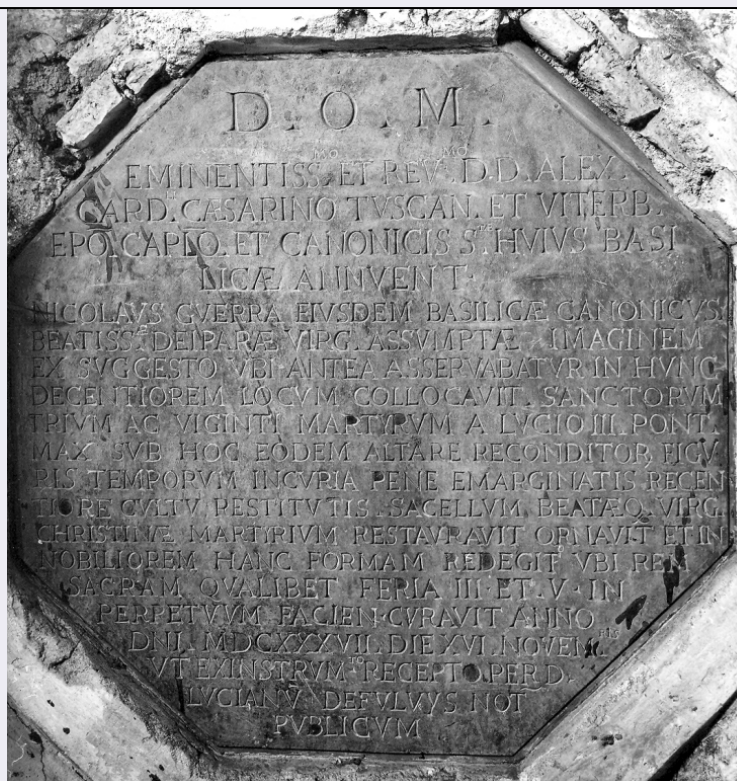 D. O. M.
EMINENTISS. MO ET REV. MO D.D. ALEX.
CARD. CÆSARINO TVSCAN. ET VITERB.
EPO. CAPLO. ET CANONICIS HVIVS BASI
LICÆ ANNVENT.
NICOLAVS GVERRA EIVSDEM BASILICÆ CANONICVS
BEATISS. DEIPARÆ VIRG. ASSVMPTÆ IMAGINEM
EX SVGGESTO VBI ANTEA ASSERVABATVR IN HVNC
DECENTIOREM LOCVM COLLOCAVIT. SANCTORVM
TRIVM AC VIGINTI MARTYRVM A LVCIO III. PONT.
MAX SVB HOC EODEM ALTARE RECONDITOR. FIGV
RIS TEMPORVM INCVRIA PENE EMARGINATIS RECEN
TIORE CVLTV RESTITVTIS. SACELLVM BEATÆQ. VIRG.
CHRISTINÆ MARTYRIVM RESTAVRAVIT ORNAVIT ET IN
NOBILIOREM HANC FORMAM REDEGIT VBI REM
SACRAM QVALIBET FERIA III. ET. V. IN
PERPETVVM FACIEN. CVRAVIT ANNO
DNI. MDCXXXVII. DIE XVI. NOVEM. RIS
VT EX INSTRVM. TO RECEPTO PER D.
LVCIANV DEFVLVYS NOT
PVBLICVM